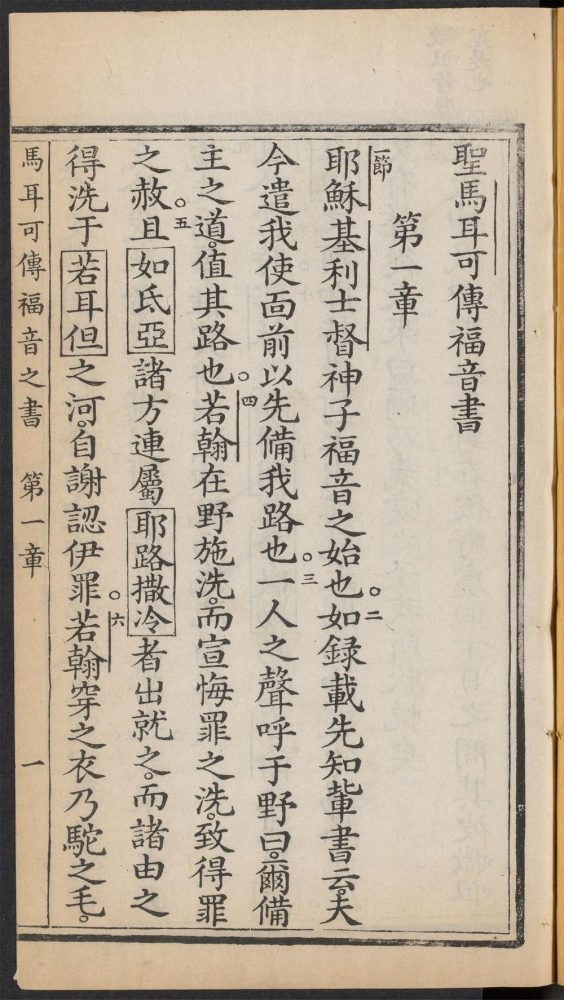 聖馬耳可傳福音書
第一章
一節 耶穌基利士督神子福音之始也。二如録載先知輩書云。夫
今遣我使面前以先備我路也。三一人之聲呼于野曰。爾備
主之道。值其路也。四若翰在野施洗。而宣悔罪之洗。致得罪
之赦。五且如氐亞諸方連屬耶路撒冷者出就之。而諸由之
得洗于若耳但之河。自謝認伊罪。六若翰穿之衣乃駝之毛。
馬耳可傳福音之書 第一章 一